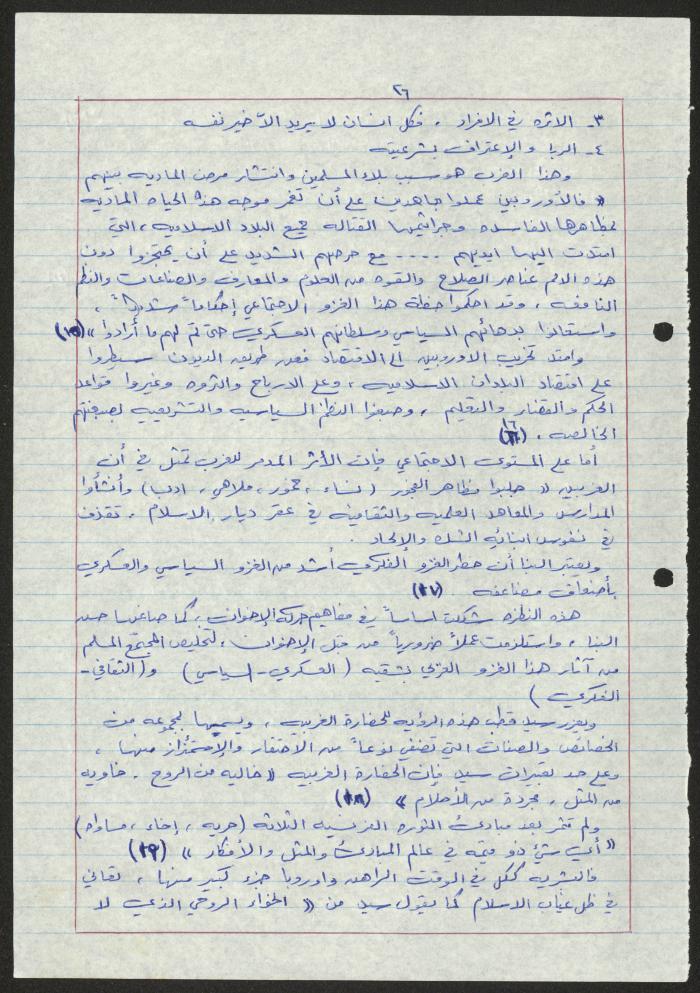 ٢٦
٣ـ الاثره في الافراد . فكل انسان لا يريد الا خير نفسه
٤ـ الربا والإعتراف بشرعيته
وهذا الغرب هو سبب بلاء المسلمين وانتشار مرض الماديه بينهم
« فالأوروبيين عملوا جاهدين على أن تغمر موجه هذه الحياه الماديه
بمظاهرها الفاسده وجراثيمها القتاله جميع البلاد الاسلاميه ، التي
امتدت اليها ايديهم .... مع حرصهم الشديد على أن يحتجزوا دون
هذه الامم عناصر الصلاح والقوه من العلوم والمعارف والصناعات والنظم
النافعه ، وقد احكموا خطة هذا الغزو الاجتماعي إحكاماً شديداً ،
واستعانوا بدهائهم السياسي وسلطانهم العسكري حتى تم لهم ما أرادوا » (١٥)
وامتد تخريب الاوروبيين الى الاقتصاد فعن طريق الديون سيطروا
على اقتصاد البلدان الاسلاميه ، وعلى الارباح والثروه وغيروا قواعد
الحكم والقضاء والتعليم ، وصبغوا النظم السياسيه والتشريعيه بصبغتهم
الخالصه . (١٦)
أما على المستوى الاجتماعي فإن الأثر المدمر للغرب تمثل في أن
الغربيين « جلبوا مظاهر الفجور (نساء ، خمور ، ملاهي ، ادب) وأنشأوا
المدارس والمعاهد العلميه والثقافيه في عقر ديار الاسلام . تقذف
في نفوس ابنائه الشك والإلحاد .
ويعتبر البنا أن خطر الغزو الفكري أشد من الغزو السياسي والعسكري
بأضعاف مضاعفه . (١٧)
هذه النظره شكلت اساساً في مفاهيم حركة الإخوان ، كما صاغها حسن
البنا ، واستلزمت عملاً ضرورياً من قبل الإخوان ، لتخليص المجتمع المسلم
من آثار هذا الغزو الغربي بشقيه (العسكري - السياسي) و (الثقافي -
الفكري)
ويعزز سيد قطب هذه الرؤيه للحضارة الغربيه ، ويسمها بمجموعه من
الخصائص والصفات التي تضفي نوعاً من الاحتقار والإشمئزاز منها ،
وعلى حد تعبيرات سيد فإن الحضارة الغربيه « خاليه من الروح . خاويه
من المثل ، مجردة من الأحلام » (١٨)
ولم تثمر بعد مبادئ الثوره الفرنسيه الثلاثه (حريه ، إخاء ، مساواه)
« أي شئ ذو قيمه في عالم المبادئ والمثل والأفكار » (١٩)
فالبشريه ككل في الوقت الراهن واوروبا جزء كبير منها ، تعاني
في ظل غياب الاسلام كما يقول سيد من « الخواء الروحي الذي لا